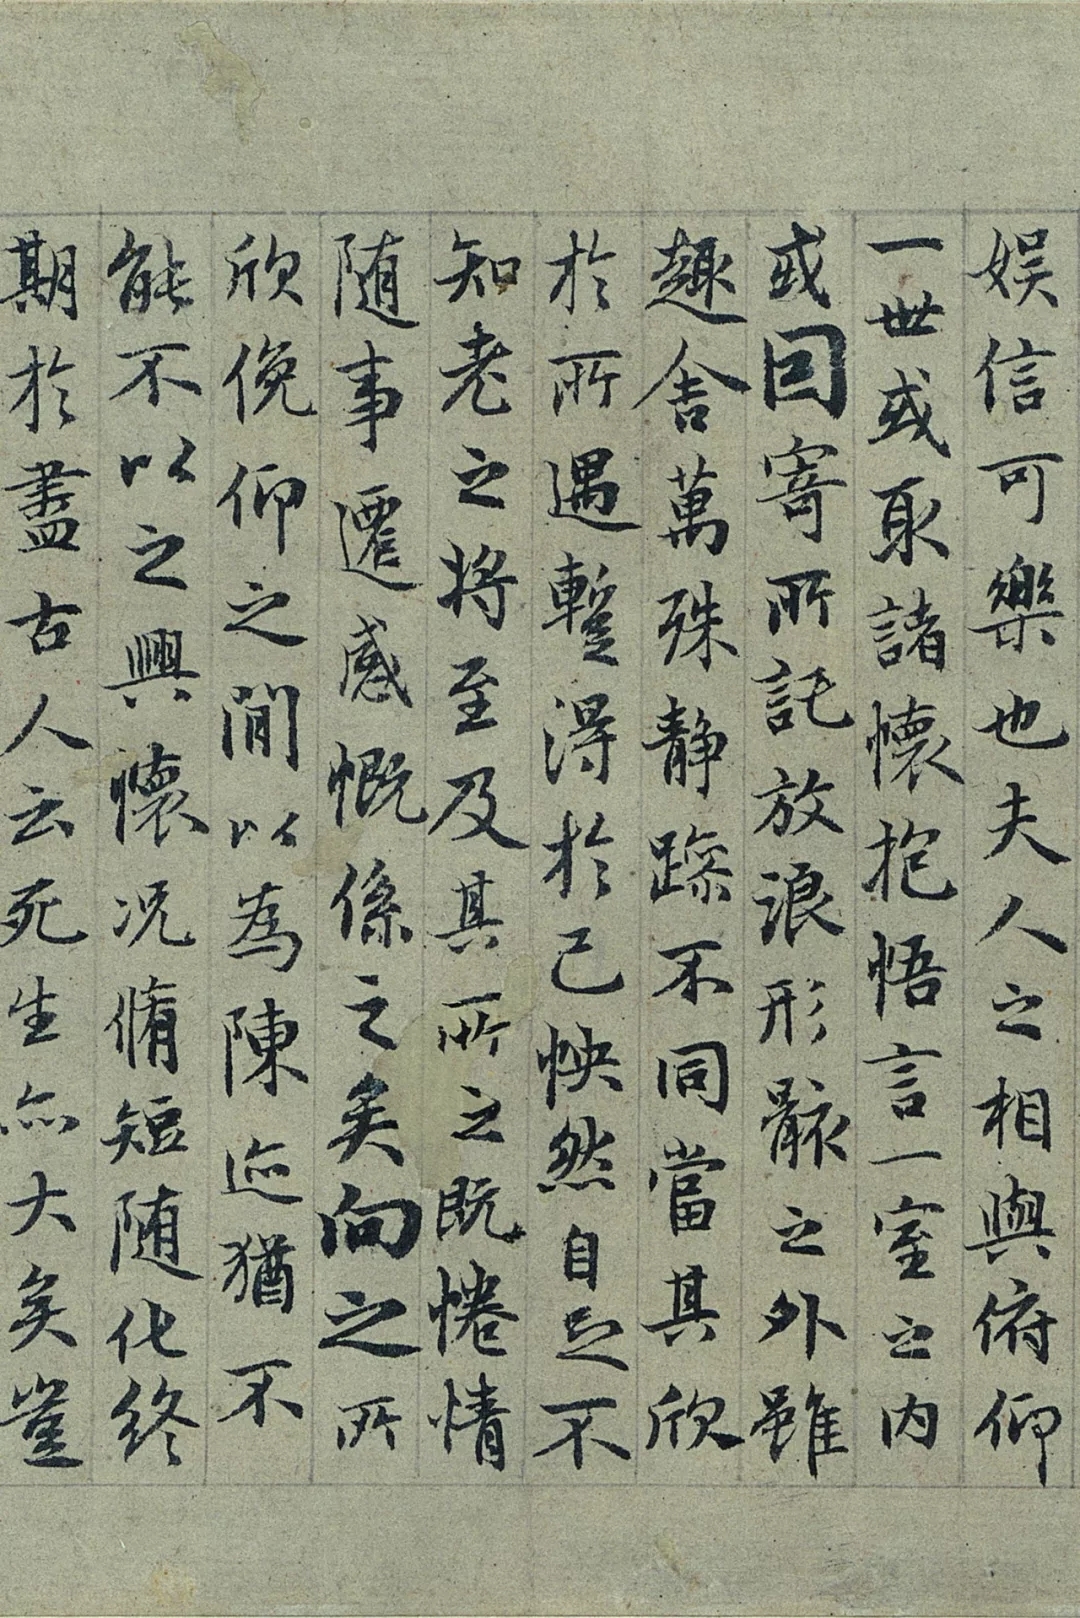 娱信可樂也夫人之相與俯仰
一世或取諸懷抱悟言一室之內
或因寄所託放浪形骸之外雖
趣舍萬殊静躁不同當其欣
於所遇蹔得於己怏然自足不
知老之將至及其所之既惓情
随事遷感慨係之矣向之所
欣俛仰之間以為陳迹猶不
能不以之興懷况脩短随化終
期於盡古人云死生亦大矣豈